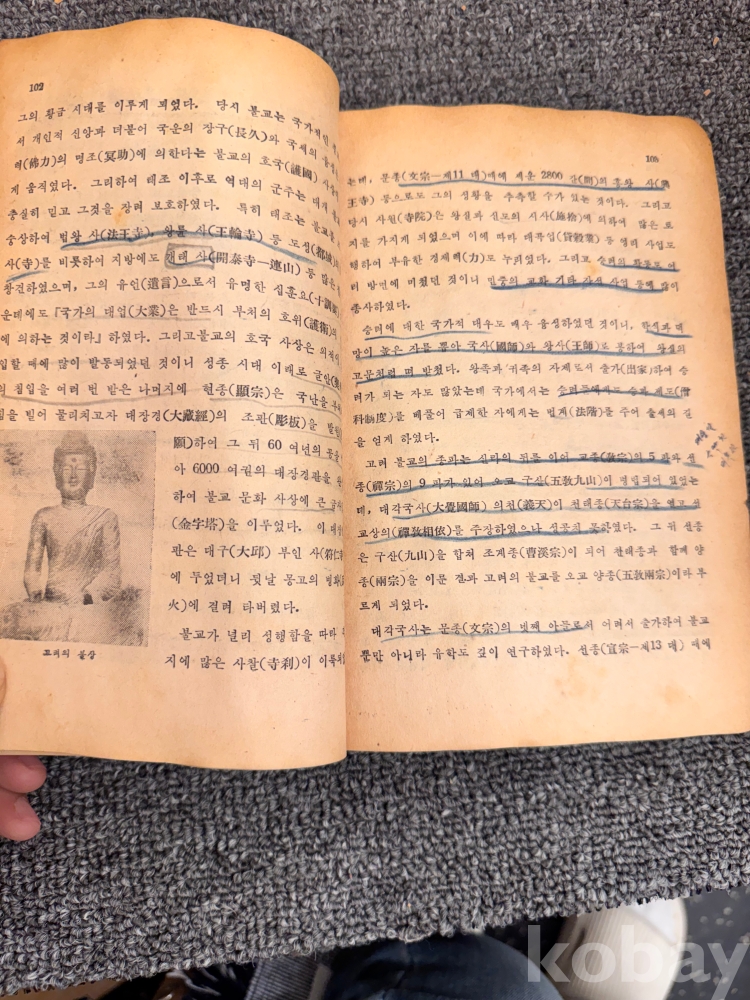 102
그의 황금 시대를 이루게 되였다. 당시 불교는 국가적인
서 개인적 신앙과 더불어 국운의 장구(長久)와 국세의
력(佛力)의 명조(冥助)에 의한다는 불교의 호국(護國) 사상
게 움직였다. 그리하여 태조 이후로 역대의 군주는 대개
충실히 믿고 그것을 장려 보호하였다. 특히 태조는 불교를
숭상하여 법왕 사(法王寺), 왕륜 사(王輪寺) 등 도성(都城)
사(寺)를 비롯하여 지방에도 개태 사(開泰寺—連山) 등 많은
창건하였으며, 그의 유언(遺言)으로서 유명한 십훈요(十訓要)
운데에도 『국가의 대업(大業)은 반드시 부처의 호위(護衛)
에 의하는 것이라』 하였다. 그리고불교의 호국 사상은 외적이
입할 때에 많이 발동되였던 것이니 성종 시대 이래로 글안
의 침입을 여러 번 받은 나머지에 현종(顯宗)은 국난을
힘을 빌어 물리치고자 대장경(大藏經)의 조판(彫板)을
願)하여 그 뒤 60 여년의 공을
아 6000 여권의 대장경판을
하여 불교 문화 사상에 큰
(金字塔)을 이루었다. 이
판은 대구(大邱) 부인 사(符仁
에 두었더니 뒷날 몽고의 병화
火)에 걸려 타버렸다.
불교가 널리 성행함을 따라
지에 많은 사찰(寺刹)이 이룩되
고려의 불상
는데, 문종(文宗—제11 대)때에 세운 2800 간(間)의 흥왕 사
王寺) 등으로도 그의 성황을 추측할 수가 있는 것이다. 그리고
당시 사원(寺院)은 왕실과 신도의 시사(施捨)에 의하여 많은 토
지를 가지게 되였으며 이에 따라 대곡업(貸穀業) 등 영리 사업도
행하여 부유한 경제력(力)도 누리였다. 그리고 승려의 활동도 여
러 방면에 미쳤던 것이니 민중의 교화 기타 자선 사업 등에 많이
종사하였다.
승려에 대한 국가적 대우도 매우 융성하였던 것이니, 학식과 덕
망이 높은 자를 뽑아 국사(國師)와 왕사(王師)로 봉하여 왕실의
고문처럼 며 받쳤다. 왕족과 귀족의 자제도서 출가(出家)하여 승
려가 되는 자도 많았는데 국가에서는 승려들에게도 승과 제도(僧
科制度)를 베풀어 급제한 자에게는 법계(法階)를 주어 출세의 길
을 얻게 하였다.
고려 불교의 종파는 신라의 뒤를 이어 교종(敎宗)의 5 파와 선
종(禪宗)의 9 파가 있어 오교 구산(五敎九山)이 병립되어 있었는
데, 대각국사(大覺國師) 의천(義天)이 천태종(天台宗)을 열고 선
교상의(禪敎相依)를 주장하였으나 성공치 못하였다. 그 뒤 선종
은 구산(九山)을 합쳐 조계종(曹溪宗)이 되어 천태종과 함께 양
종(兩宗)을 이룬 결과 고려의 불교를 오교 양종(五敎兩宗)이라 부
르게 되였다.
대각국사는 문종(文宗)의 넷째 아들로서 어려서 출가하여 불교
뿐만 아니라 유학도 깊이 연구하였다. 선종(宣宗—제13 대) 때에
kobay